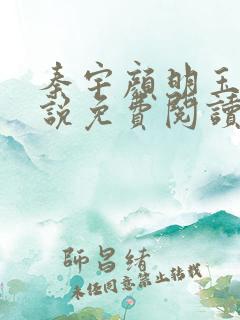 秦宇顏明玉
說免費閱讀
師昌緒
未經同意禁止轉載